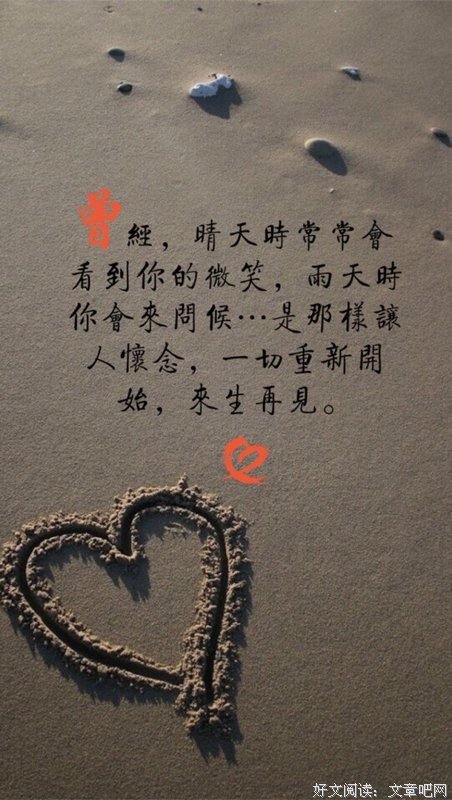 曾經，晴天時常常會
看到你的微笑，雨天時
你會來問候…是那樣讓
人懷念，一切重新開
始，來生再見。
好文阅读：文章吧网